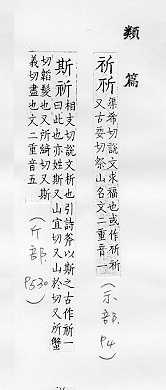 類篇
祈𥘵 渠希切說文求福也或作𥘵祈
又古委切祭山名文二重音一
(示部 P4)
斯𣂕 相支切說文析也引詩斧以斯之古作𣂕一
曰此也亦姓斯又山宜切又山於切又所蟹
切韜髮也又所綺切又斯
義切盡也文二重音五
(斤部 P530)